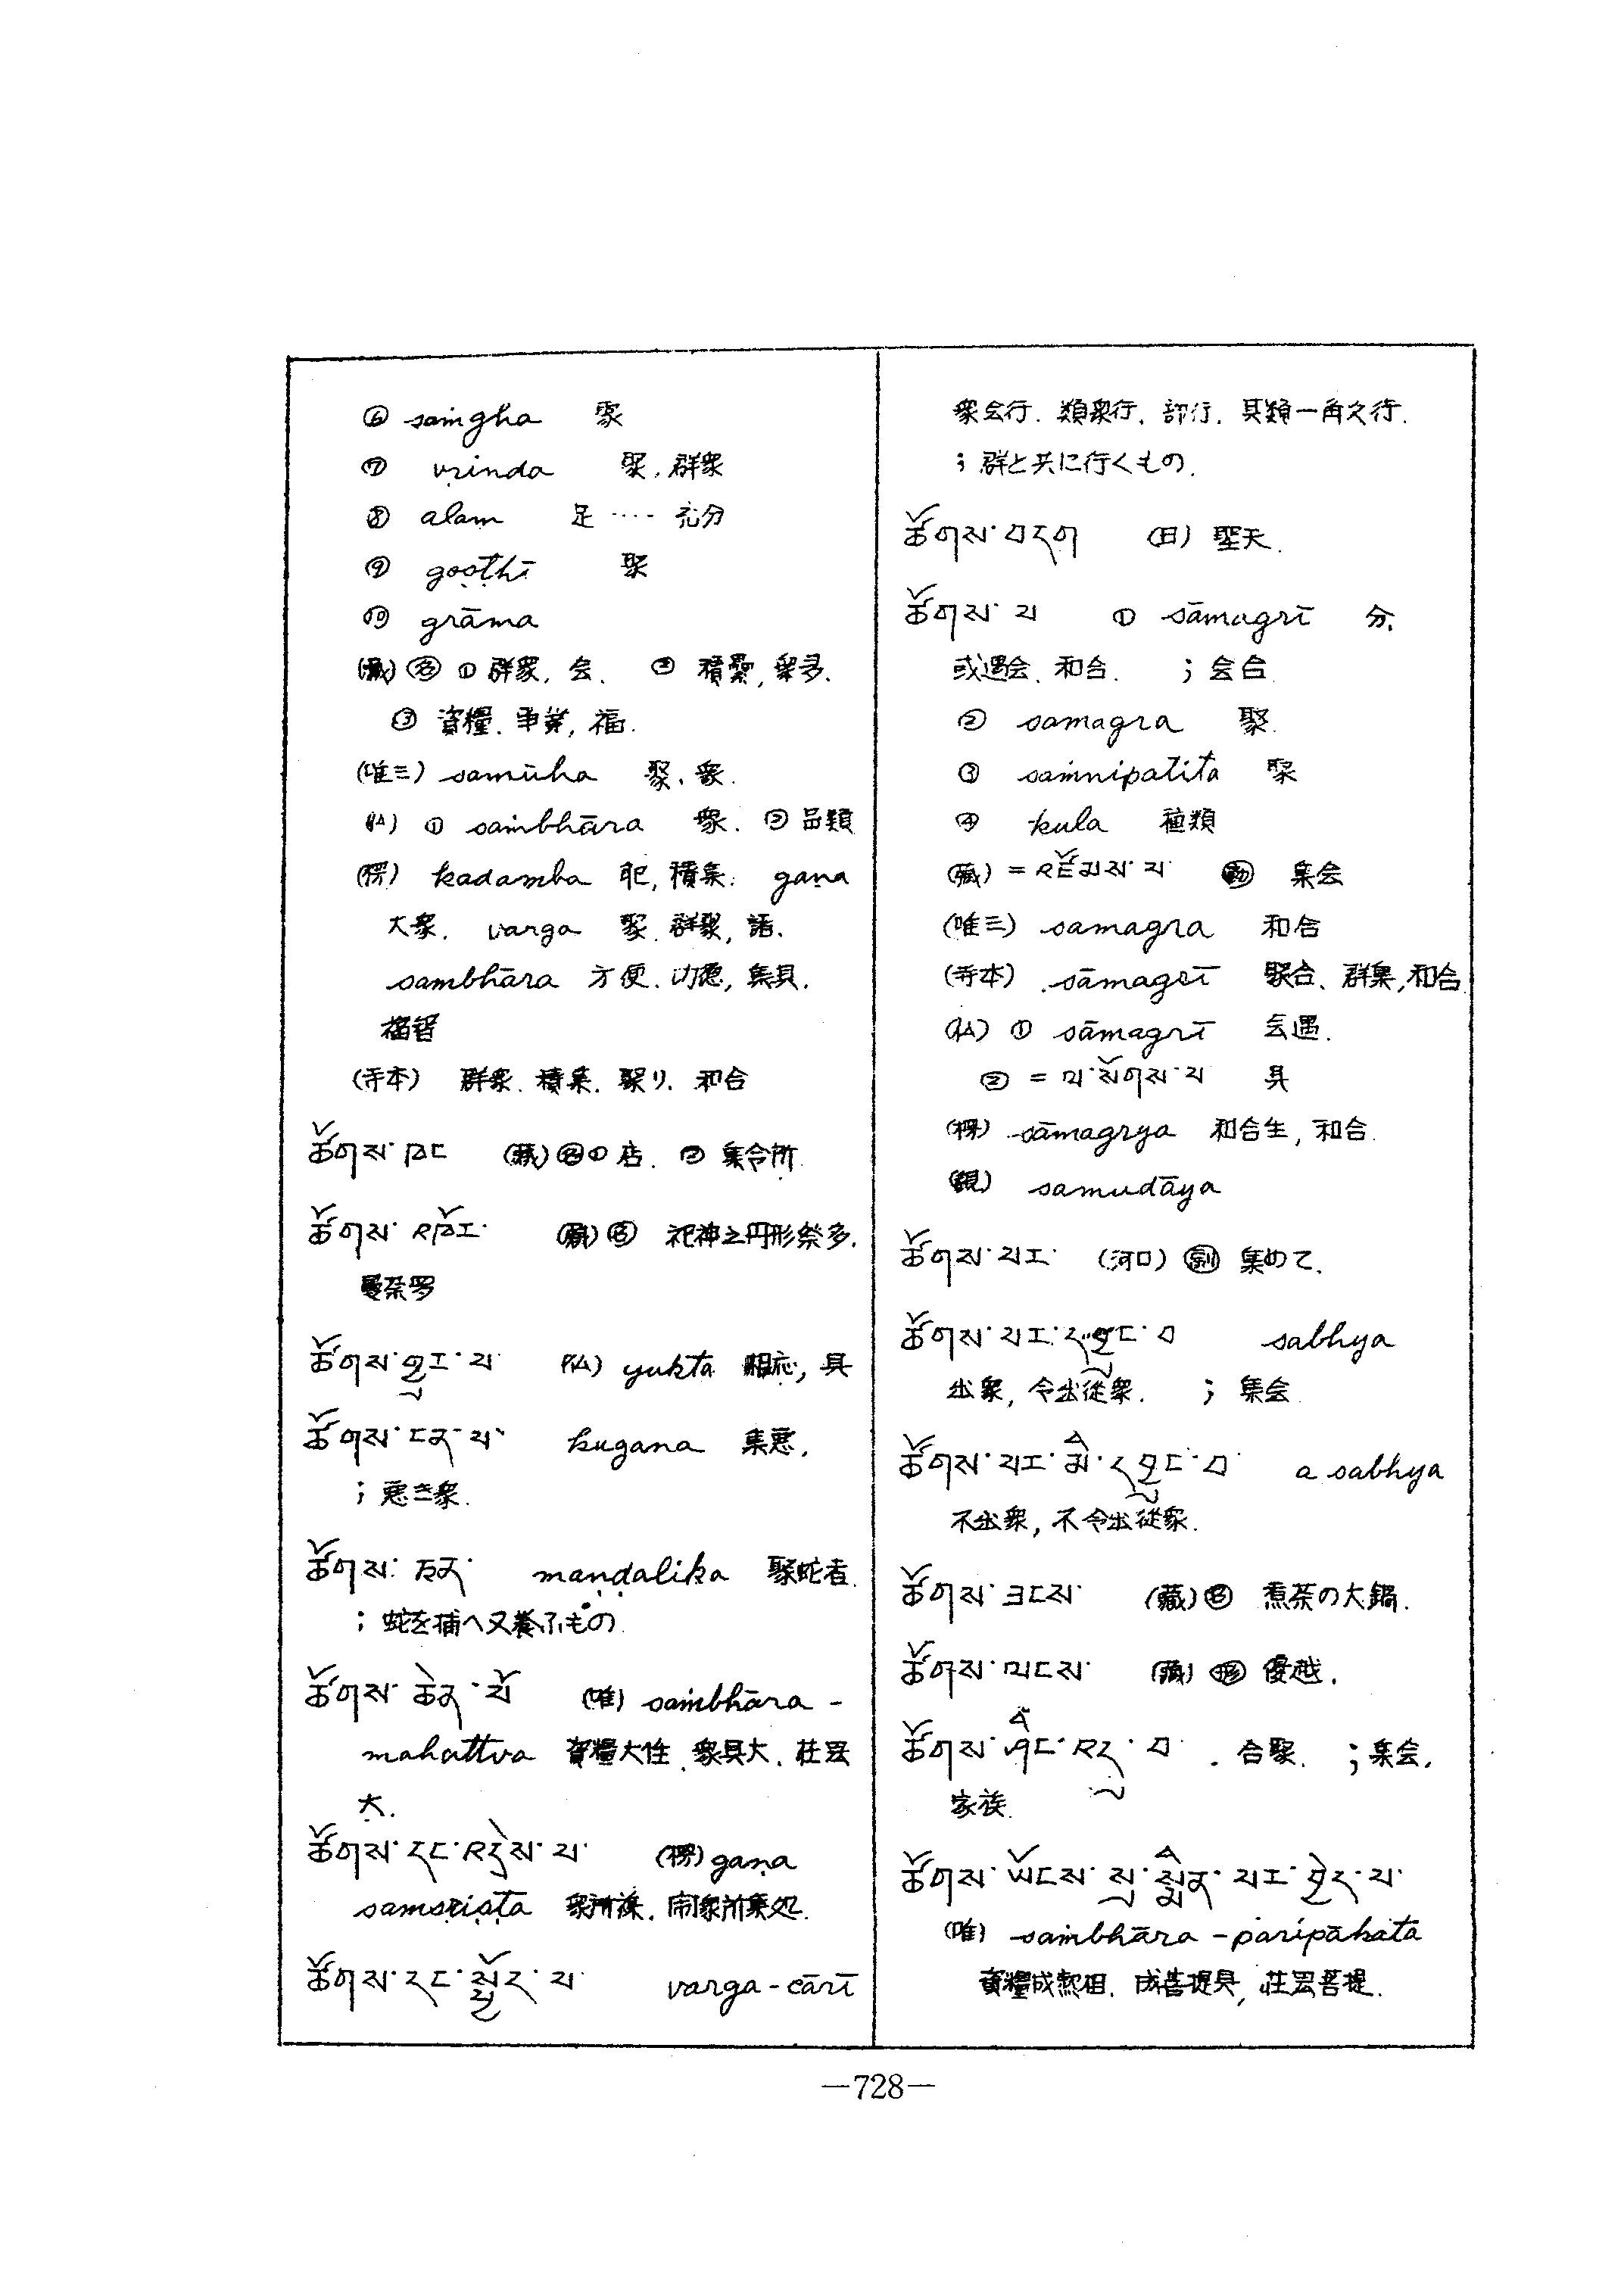 ⑥ saṁgha 衆
⑦ vṛinda 聚, 群衆
⑧ alam 足 ‥‥ 充分
⑨ goṣṭhī 聚
⑩ grāma
(藏) 名 ① 群衆, 会、 ② 積聚, 衆多.
③ 資糧、事業, 福.
(唯三) samūha 聚、衆.
① saṁbhāra 衆. ② 品類
(楞) kadamba 聚, 積集. gaṇa
大衆. varga 聚, 群聚, 諸.
sambhāra 方便、功徳, 集具.
福智
(寺本) 群衆、積集、聚り、和合
ཚོགས་ཁང (藏) 名 ① 店. ② 集会所
ཚོགས་འཁོར་ (藏) 名 祀神之円形祭多.
曼荼罗
ཚོགས་གྱུར་པ yukta 相応, 具
ཚོགས་ངན་པ་ kugana 集悪.
; 悪き衆.
ཚོགས་ཅན་ maṇḍalika 聚蛇者
; 蛇を捕へ又養ふもの
ཚོགས་ཆེན་པོ (唯) saṁbhāra -
mahattva 資糧大性、衆具大、荘厳
大.
ཚོགས་དང་འདྲེས་པ་ (楞) gaṇa
samsṛiṣṭa 衆所集処.
ཚོགས་དང་སྤྱོད་པ varga-cārī
衆会行. 類衆行, 部行, 其類一角之行.
; 群と共に行くもの.
ཚོགས་བདག (日) 聖天.
ཚོགས་པ ① sāmagrī 分,
或遇会、和合. ; 会合
② samagra 聚.
③ saṁnipatita 聚
④ kula 種類
(藏) = འཛོམས་པ 動 集会
(唯三) samagra 和合
(寺本) sāmagrī 聚合、群集, 和合
① sāmagrī 会遇.
② = ལ་སོགས་པ 具
(楞) sāmagrya 和合生, 和合.
(観) samudāya
ཚོགས་པར་ (河口) 副 集めて.
ཚོགས་པར་དབྱུང་བ sabhya
出衆, 令出従衆. ; 集会
ཚོགས་པར་མི་དབྱུང་བ a sabhya
不出衆, 不令出従衆.
ཚོགས་ཟངས་ (藏) 名 煮茶の大鍋.
ཚོགས་ལངས་ (藏) 形 優越.
ཚོགས་ཤིང་འདུ་བ 合聚. ; 集会.
家族.
ཚོགས་ཡོངས་སུ་སྨིན་པར་བྱེད་པ་
(唯) saṁbhāra - paripākatā
資糧成熟相. 成菩提具, 荘厳菩提.
—728—